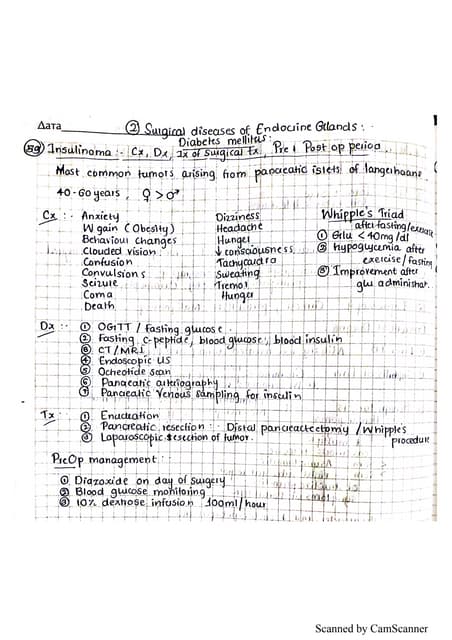 Дата
② Surgical diseases of Endocrine Glands :
Diabetes mellitus
59 Insulinoma :- Cx, Dx, Tx of surgical tx, Pre & Post op period.
Most common tumors arising from pancreatic islets of langerhaans.
40-60 years, ♀ > ♂
Cx :- Anxiety
W gain (Obesity)
Behaviour changes
Clouded vision
Confusion
Convulsions
Seizure
Coma
Death
Dizziness
Headache
Hunger
↓ consciousness
Tachycardia
Sweating
Tremor
Hunger
Whipple's Triad
after fasting/exercise
① Glu < 40mg/dl
② hypoglycemia after
exercise/fasting
③ Improvement after
glu administrat.
Dx :- ① OGTT / fasting glucose.
② Fasting c-peptide, blood glucose, blood insulin
③ CT/MRI
④ Endoscopic US
⑤ Octreotide scan
⑥ Pancreatic arteriography
⑦ Pancreatic Venous sampling for insulin
Tx :- ① Enucleation
② Pancreatic resection :- Distal pancreactectomy / Whipple's
procedure
③ Laparoscopic resection of tumor.
PreOp management :
① Diazoxide on day of surgery
② Blood glucose monitoring
③ 10% dextrose infusion 100ml/hour
Scanned by CamScanner